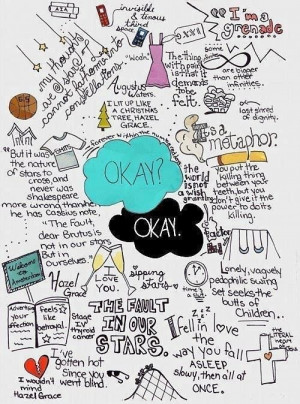 invisible
& tenous
third
space
"I'm a
grenade
my thoughts
are stars I
cannot fathom into
constellations.
Augustus
Waters
The thing
with pain
is that it
demands
to be
felt.
some
infinities
are bigger
than other
infinities.
I LIT UP LIKE
A CHRISTMAS
TREE, HAZEL
GRACE.
last shred
of dignity.
forever within the numbered
It's a
metaphor.
you put the
killing thing
between your
teeth, but you
don't give it the
power to do its
killing.
"But it was
the nature
of stars to
cross, and
never was
Shakespeare
more wrong than when
he has Cassius note,
"The fault,
dear Brutus is
not in our stars
But in
ourselves."
OKAY?
OKAY.
the
world
is not
a wish
granting
factory
Welcome
to
Amsterdam
Hazel
Grace
I
LOVE
YOU.
sipping
stars
Lonely, vaguely
pedophilic swing
set seeks the
butts of
children.
Feels
like
betrayal.
your
affection
Stage
IV
thyroid
cancer
THE FAULT
IN OUR
STARS.
zzz
I fell in love
the
way you fall
ASLEEP
slowy, then all at
ONCE.
THE
LITERAL
HEART
OF
JESUS
I've
gotten hot
Since you
went blind.
I wouldn't
mind
Hazel Grace